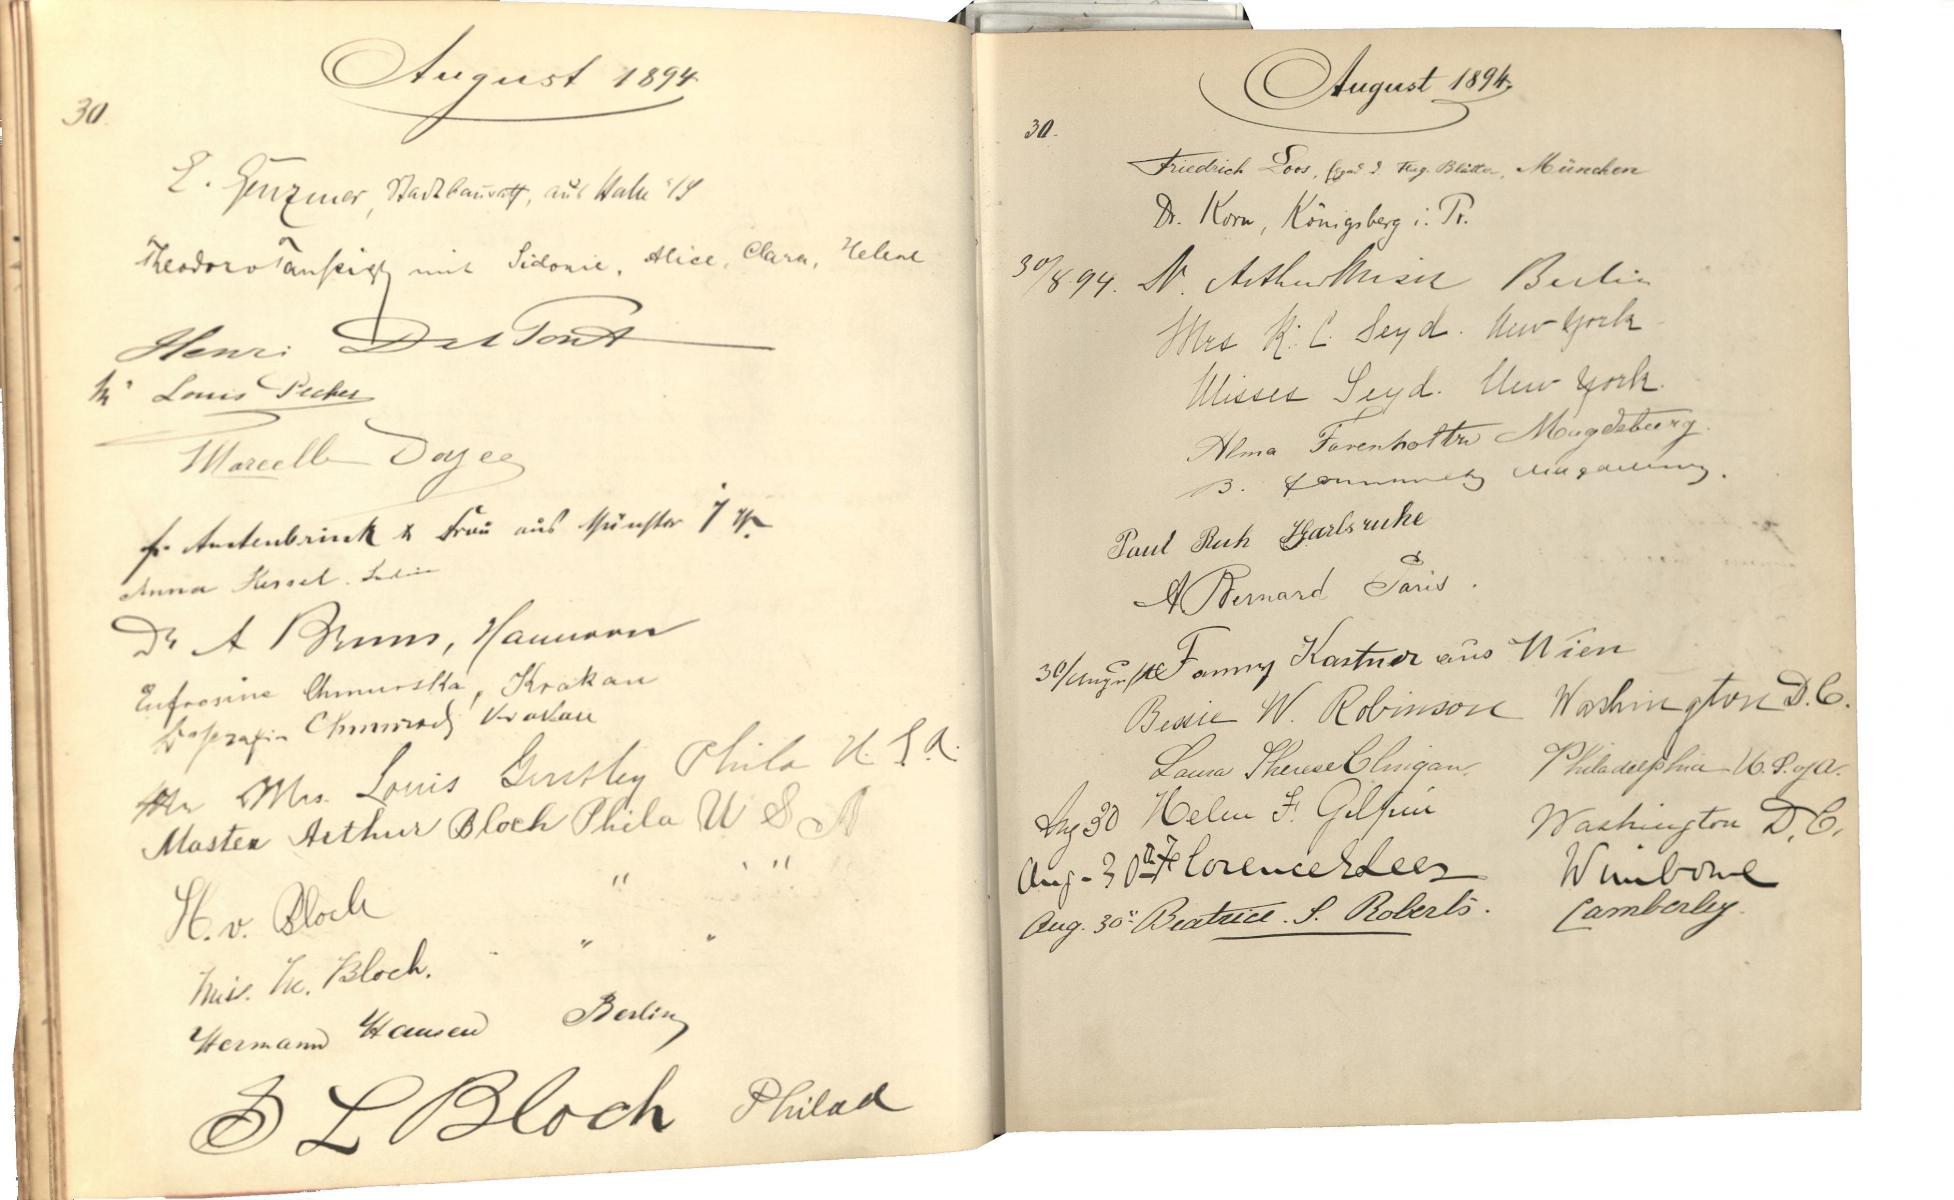 August 1894
30.
E. Genzmer, Stadtbaurath, aus Halle a/S
Theodor Taußig mit Sidonie, Alice, Clara, Helene
Henri
Louis Pecher
Marcelle
& Frau aus Münster i/W
Anna Kessel.
Dr A Bruns, Hannover
Eufrosine Chmurska, Krakau
Krakau
Mr Mrs. Louis Gerstley Phila U.S.A.
Master Arthur Bloch Phila U S A
H. v. Bloch " " "
Miss. M. Bloch. " "
Hermann Hansen Berlin
B L Bloch Philad
August 1894.
30.
Friedrich Loos, Flieg. Blätter, München
Dr. Korn, Königsberg i. Pr.
30/8.94. Dr. Arthur Berlin
Mrs K. C. Seyd. New York
Misses Seyd. New York.
Alma Farenholtz Magdeburg.
B. Magdeburg.
Paul Ruh Karlsruhe
A Bernard Paris.
30/August Fanny Kastner aus Wien
Bessie W. Robinson Washington D.C.
Laura Therese Clingan. Philadelphia U.S. of A.
Aug 30 Helen F. Gilpin Washington D.C.
Aug- 30th Florence E Lees Wimborne
Aug. 30th Beatrice. S. Roberts. Camberley.